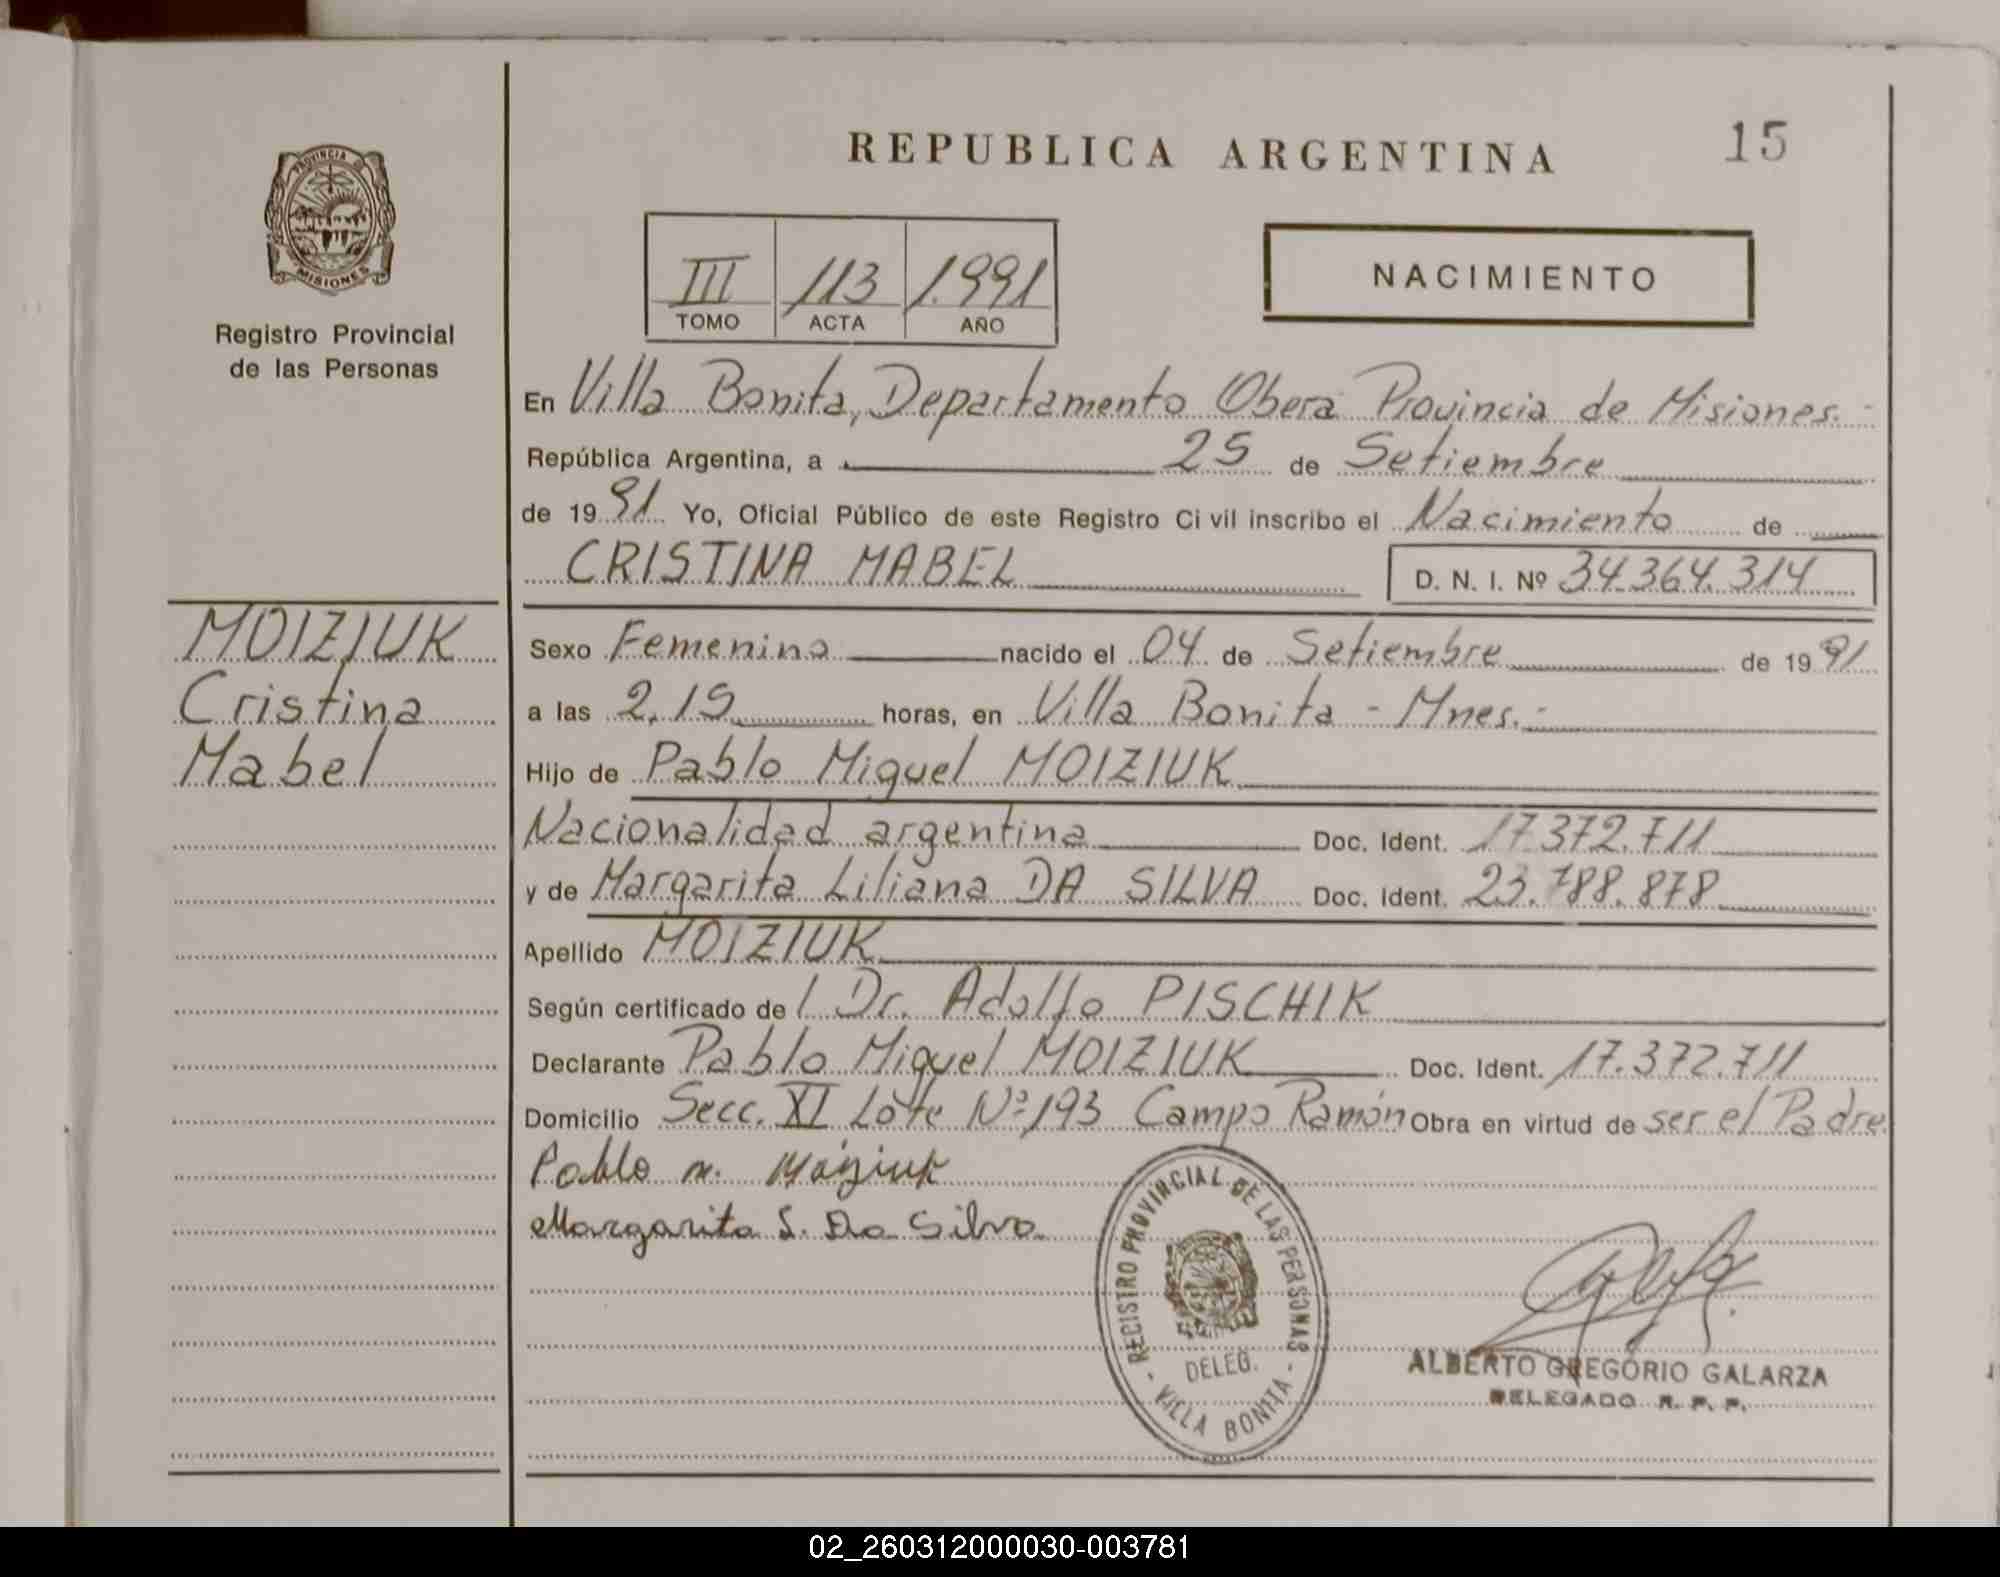 REPUBLICA ARGENTINA
15
PROVINCIA DE
MISIONES
Registro Provincial
de las Personas
III 113 1.991
TOMO ACTA AÑO
NACIMIENTO
En Villa Bonita, Departamento Obera Provincia de Misiones.-
República Argentina, a 25 de Setiembre
de 1991 Yo, Oficial Público de este Registro Civil inscribo el Nacimiento de
CRISTINA MABEL D. N. I. Nº 34.364.314
MOIZIUK
Cristina
Mabel
Sexo Femenino nacido el 04 de Setiembre de 1991
a las 2,15 horas, en Villa Bonita - Mnes.-
Hijo de Pablo Miguel MOIZIUK
Nacionalidad argentina Doc. Ident. 17.372.711
y de Margarita Liliana DA SILVA Doc. Ident. 23.788.878
Apellido MOIZIUK
Según certificado de l Dr. Adolfo PISCHIK
Declarante Pablo Miguel MOIZIUK Doc. Ident. 17.372.711
Domicilio Secc. XI Lote Nº 193 Campo Ramón Obra en virtud de ser el Padre
Pablo M. Moiziuk
Margarita L. Da Silva
REGISTRO PROVINCIAL DE LAS PERSONAS
DELEG.
- VILLA BONITA -
ALBERTO GREGORIO GALARZA
DELEGADO R. P. P.
02_260312000030-003781